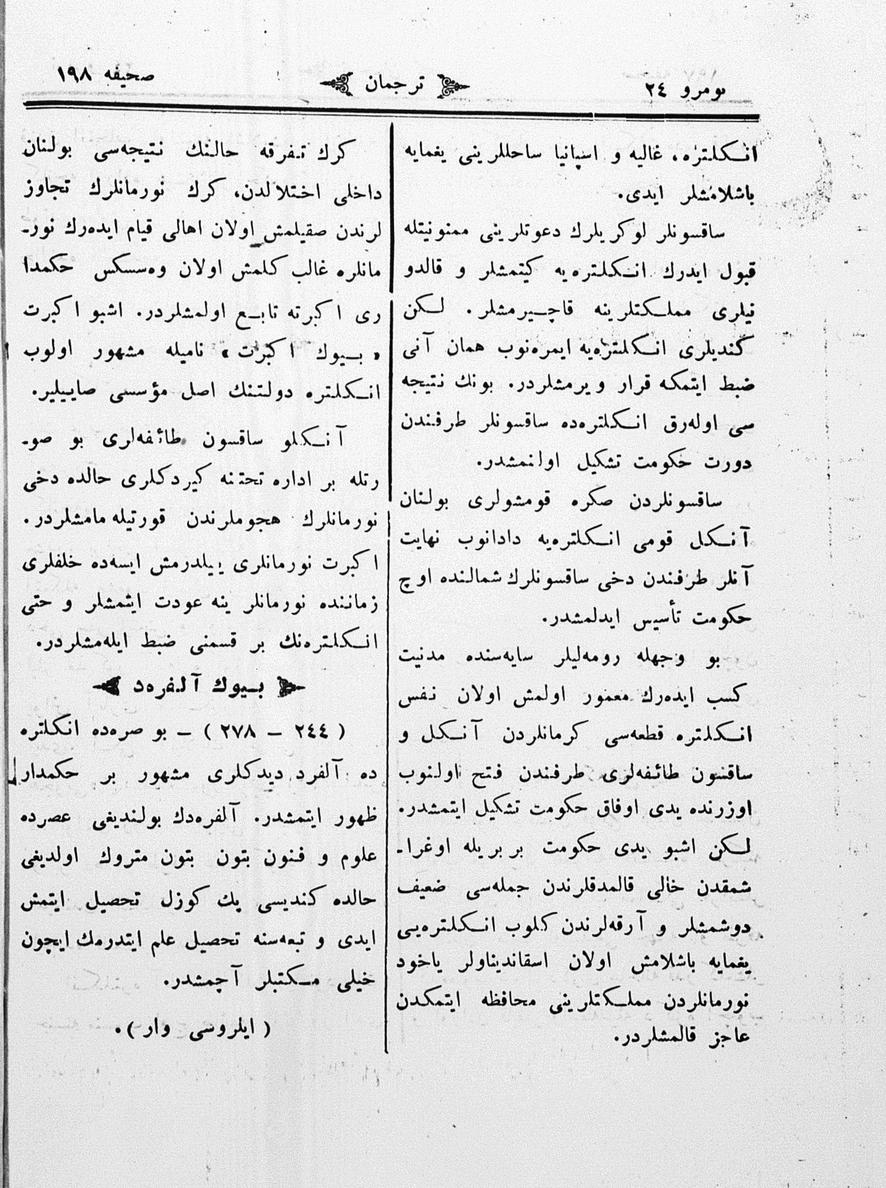 نومرو ٢٤
ترجمان
صحیفه ١٩٨
انـكلتره، غالیه و اسپانیا ساحللرینی یغمایه
باشلامشلر ایدی.
ساقسونلر لوكریلرك دعوتلرینی ممنونیتله
قبول ایدرك انـكلتره‌یه كیتمشلر و قالدو
نیلری مملـكتلرینه قاچـیرمشلر. لـكن
كندیلری انـكلتره‌یه ایمره‌نوب همان آنی
ضبط ایتمكه قرار ویرمشلردر. بونك نتیجه
سی اوله‌رق انـكلتره‌ده ساقسونلر طرفندن
دورت حكومت تشكیل اولنمشدر.
ساقسونلردن صكره قومشولری بولنان
آنـكل قومی انـكلتره‌یه دادانوب نهایت
آنلر طرفندن دخی ساقسونلرك شمالنده اوچ
حكومت تأسیس ایدلمشدر.
بو وجهله رومه‌لیلر سایه‌سنده مدنیت
كسب ایده‌رك معمور اولمش اولان نفس
انـكلتره قطعه‌سی كرمانلردن آنـكل و
ساقسون طائفه‌لری طرفندن فتح اولنوب
اوزرنده یدی اوفاق حكومت تشكیل ایتمشدر.
لـكن اشبو یدی حكومت بر بریله اوغرا-
شمقدن خالی قالمدقلرندن جمله‌سی ضعیف
دوشمشلر و آرقه‌لرندن كلوب انـكلتره‌یی
یغمایه باشلامش اولان اسقاندیناولر یاخود
نورمانلردن مملـكتلرینی محافظه ایتمكدن
عاجز قالمشلردر.
كرك تـفرقه حالنك نتیجه‌سی بولنان
داخلی اختلالدن، كرك نورمانلرك تجاوز
لرندن صقیلمش اولان اهالی قیام ایده‌رك نور-
مانلره غالب كلمش اولان وه‌سسكس حكمدا
ری اكبرته تابـع اولمشلردر. اشبو اكبرت
«بـیوك اكبرت» نامیله مشهور اولوب
انـكلتره دولتنك اصل مؤسسی صاییلیر.
آنـكلو ساقسون طائفه‌لری بو صو-
رتله بر اداره تحتنه كیردكلری حالده دخی
نورمانلرك هجوملرندن قورتیله‌مامشلردر.
اكبرت نورمانلری ییلدرمش ایسه‌ده خلفلری
زماننده نورمانلر ینه عودت ایتمشلر و حتی
انـكلتره‌نك بر قسمنی ضبط ایله‌مشلردر.
بـیوك آلـفره‌د
(٢٤٤ — ٢٧٨) — بو صره‌ده انگلتره
ده آلفرد دیدكلری مشهور بر حكمدار
ظهور ایتمشدر. آلفره‌دك بولندیغی عصرده
علوم و فنون بتون بتون متروك اولدیغی
حالده كندیسی پك كوزل تحصیل ایتمش
ایدی و تبعه‌سنه تحصیل علم ایتدرمك ایچون
خیلی مـكتبلر آچمشدر.
(ایلروسی وار).